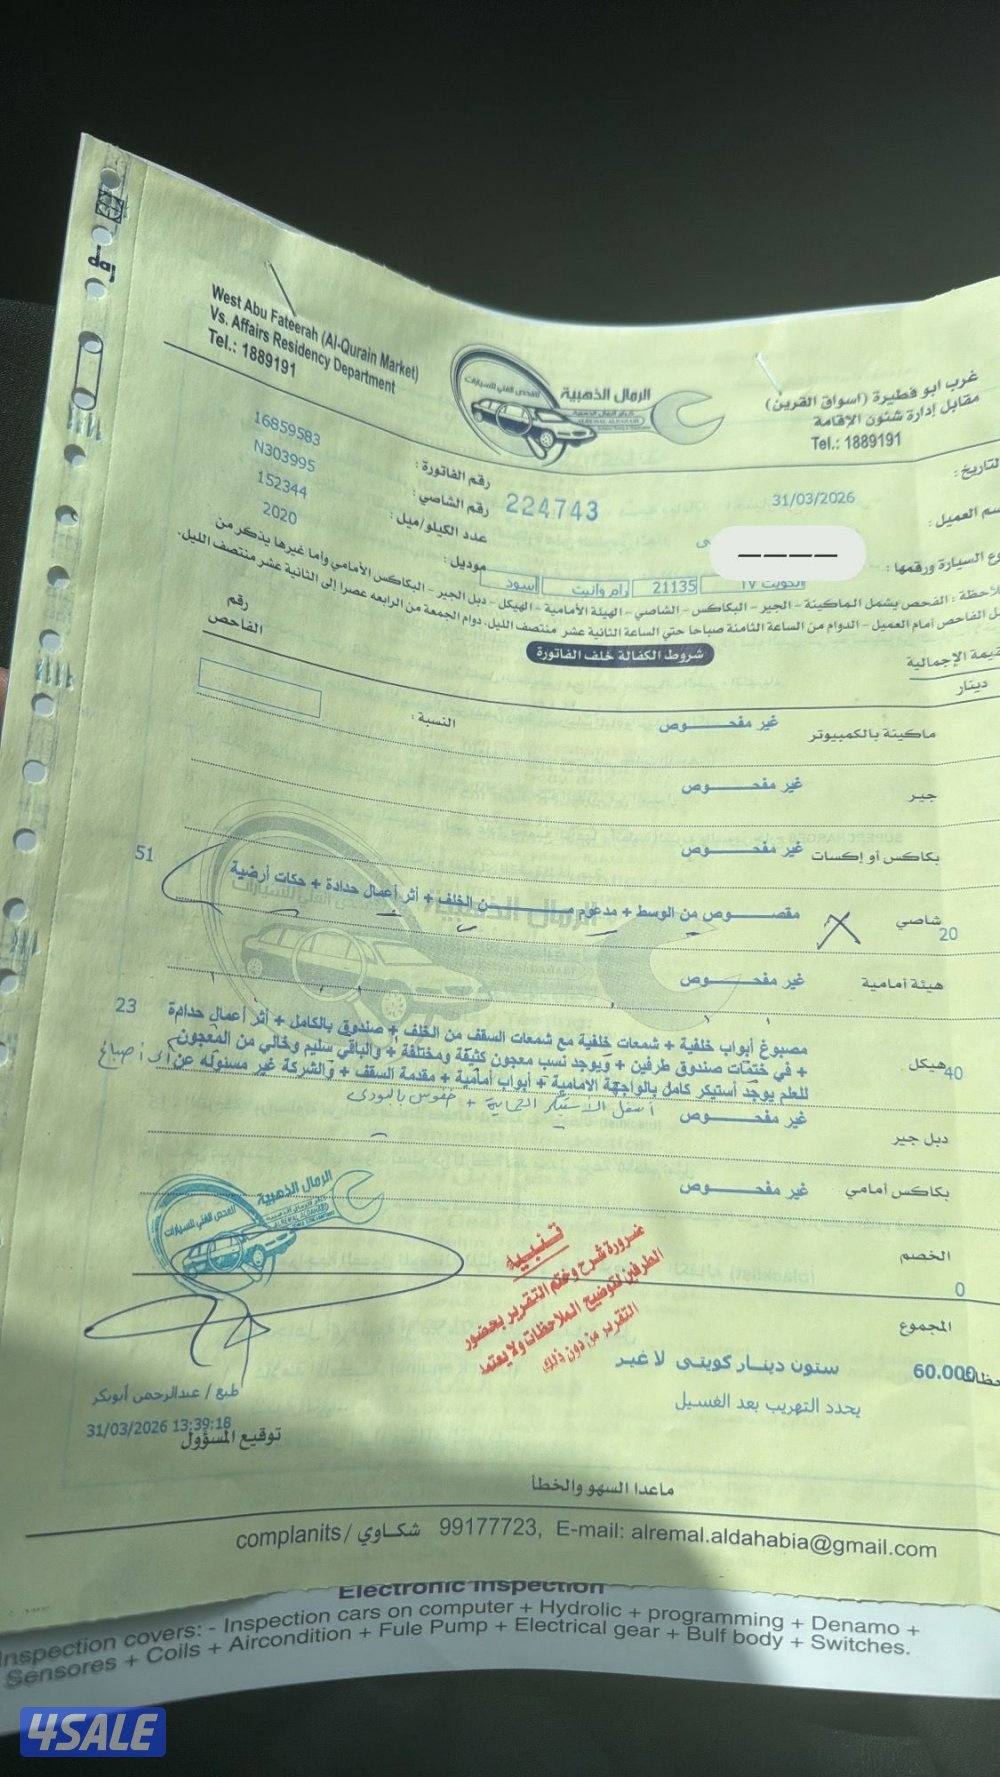 West Abu Fateerah (Al-Qurain Market)
Vs. Affairs Residency Department
Tel.: 1889191
الرمال الذهبية
للفحص الفني للسيارات
غرب ابو فطيرة (اسواق القرين)
مقابل إدارة شئون الإقامة
Tel.: 1889191
التاريخ :
31/03/2026
رقم الفاتورة :
16859583
224743
رقم الشاصي :
N303995
سم العميل :
عدد الكيلو/ميل :
152344
وع السيارة ورقمها :
الكويت ٢٧
21135
رام وانيت
أسود
موديل :
2020
لاحظة : الفحص يشمل الماكينة - الجير - البكاكس - الشاصي - الهيئة الأمامية - الهيكل - دبل الجير - البكاكس الأمامي وأما غيرها يذكر من
ل الفاحص أمام العميل - الدوام من الساعة الثامنة صباحا حتي الساعة الثانية عشر منتصف الليل. دوام الجمعة من الرابعه عصرا إلى الثانية عشر منتصف الليل.
شروط الكفالة خلف الفاتورة
قيمة الإجمالية
دينار
رقم
الفاحص
ماكينة بالكمبيوتر
غير مفحـــــوص
النسبة :
جير
غير مفحـــــوص
بكاكس أو إكسات
غير مفحـــــوص
شاصي
20
مقصـــــوص من الوسط + مدعوم مـــــن الخلف + أثر أعمال حدادة + حكات أرضية
51
هيئة أمامية
غير مفحـــــوص
هيكل
40
مصبوغ أبواب خلفية + شمعات خلفية مع شمعات السقف من الخلف + صندوق بالكامل + أثر أعمال حدادة
+ في ختمات صندوق طرفين + ويوجد نسب معجون كثيفة ومختلفة + والباقي سليم وخالي من المعجون
للعلم يوجد أستيكر كامل بالواجهة الامامية + أبواب أمامية + مقدمة السقف + والشركة غير مسئوله عن أي أصباغ
أسفل الأستيكر الحماية + خفوس بالبودي
23
دبل جير
غير مفحـــــوص
بكاكس أمامي
غير مفحـــــوص
الخصم
0
المجموع
60.000
ستون دينار كويتى لا غير
يحدد التهريب بعد الغسيل
تنبيه
ضرورة شرح وختم التقرير بحضور
الطرفين لتوضيح الملاحظات ولا يعتمد
التقرير من دون ذلك
الرمال الذهبية
للفحص الفني للسيارات
طبع / عبدالرحمن أبوبكر
31/03/2026 13:39:18
توقيع المسؤول
ماعدا السهو والخطأ
complanits / شكاوي 99177723, E-mail: alremal.aldahabia@gmail.com
Electronic Inspection
Inspection covers: - Inspection cars on computer + Hydrolic + programming + Denamo +
Sensores + Coils + Aircondition + Fule Pump + Electrical gear + Bulf body + Switches.
4SALE